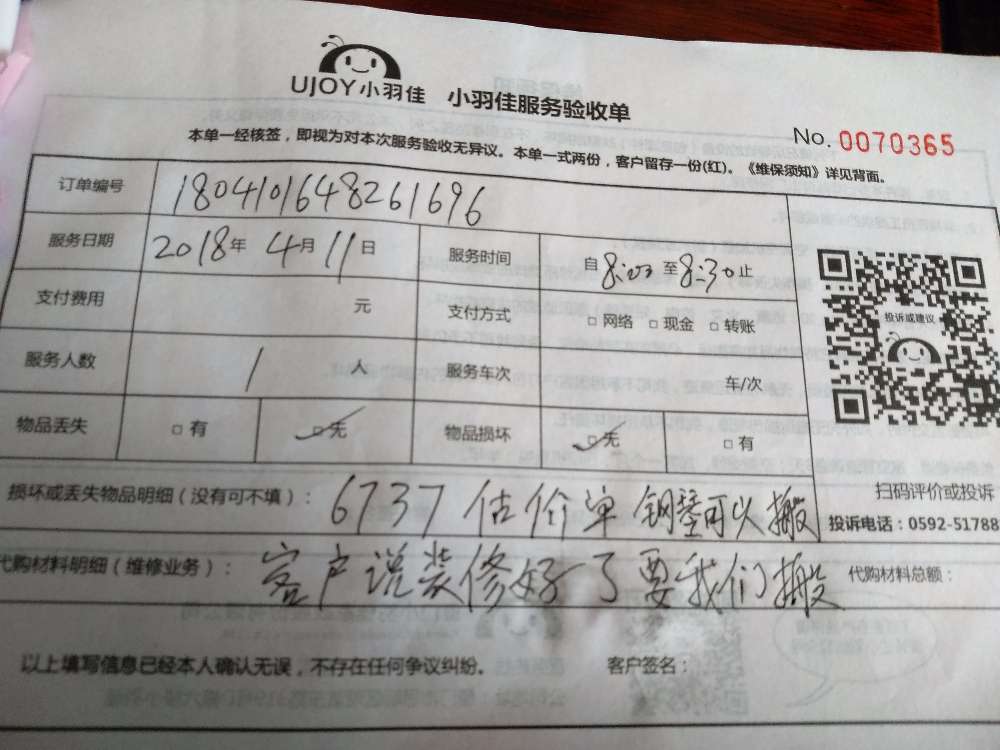 UJOY小羽佳 小羽佳服务验收单
No. 0070365
本单一经核签，即视为对本次服务验收无异议。本单一式两份，客户留存一份(红)。《维保须知》详见背面。
订单编号 1804101648261696
服务日期 2018年 4月 11日 服务时间 自 8:00 至 8:30 止
支付费用 元 支付方式 □ 网络 □ 现金 □ 转账
投诉或建议
服务人数 1 人 服务车次 车/次
物品丢失 □ 有 □ 无 物品损坏 □ 无 □ 有
损坏或丢失物品明细（没有可不填）： 6737 估价单 钢琴可以搬
扫码评价或投诉
投诉电话：0592-51788
代购材料明细（维修业务）： 客户说装修好了要我们搬 代购材料总额：
以上填写信息已经本人确认无误，不存在任何争议纠纷。 客户签名：